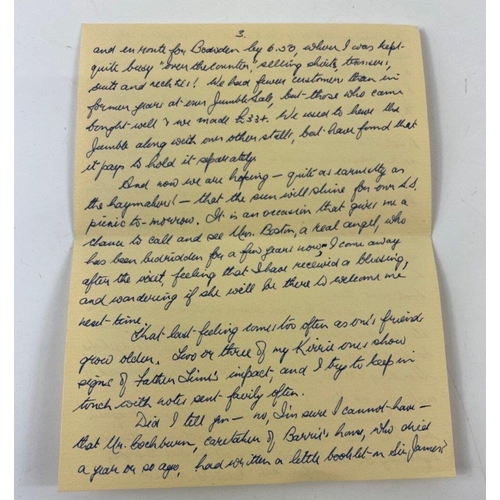 3.
and en route for Bowden by 6.50, where I was kept
quite busy "over the counter," selling shirts, trousers,
suits and neckties! We had fewer customers than in
former years at our Jumble Sale, but those who came
bought well & we made £33+. We used to have the
Jumble along with our other stalls, but have found that
it pays to hold it separately.
And now we are hoping – quite as earnestly as
the haymakers! – that the sun will shine for our S.S.
picnic to-morrow. It is an occasion that gives me a
chance to call and see Mrs. Boston, a real angel, who
has been bedridden for a few years now; I come away
after the visit, feeling that I have received a blessing,
and wondering if she will be there to welcome me
next-time.
That last feeling comes too often as one's friends
grow older. Two or three of my Kirrie ones show
signs of Father Time's impact, and I try to keep in
touch with notes sent fairly often.
Did I tell you – no, I'm sure I cannot have –
that Mr. Cockburn, caretaker of Barrie's home, who died
a year or so ago, had written a little booklet on Sir James'